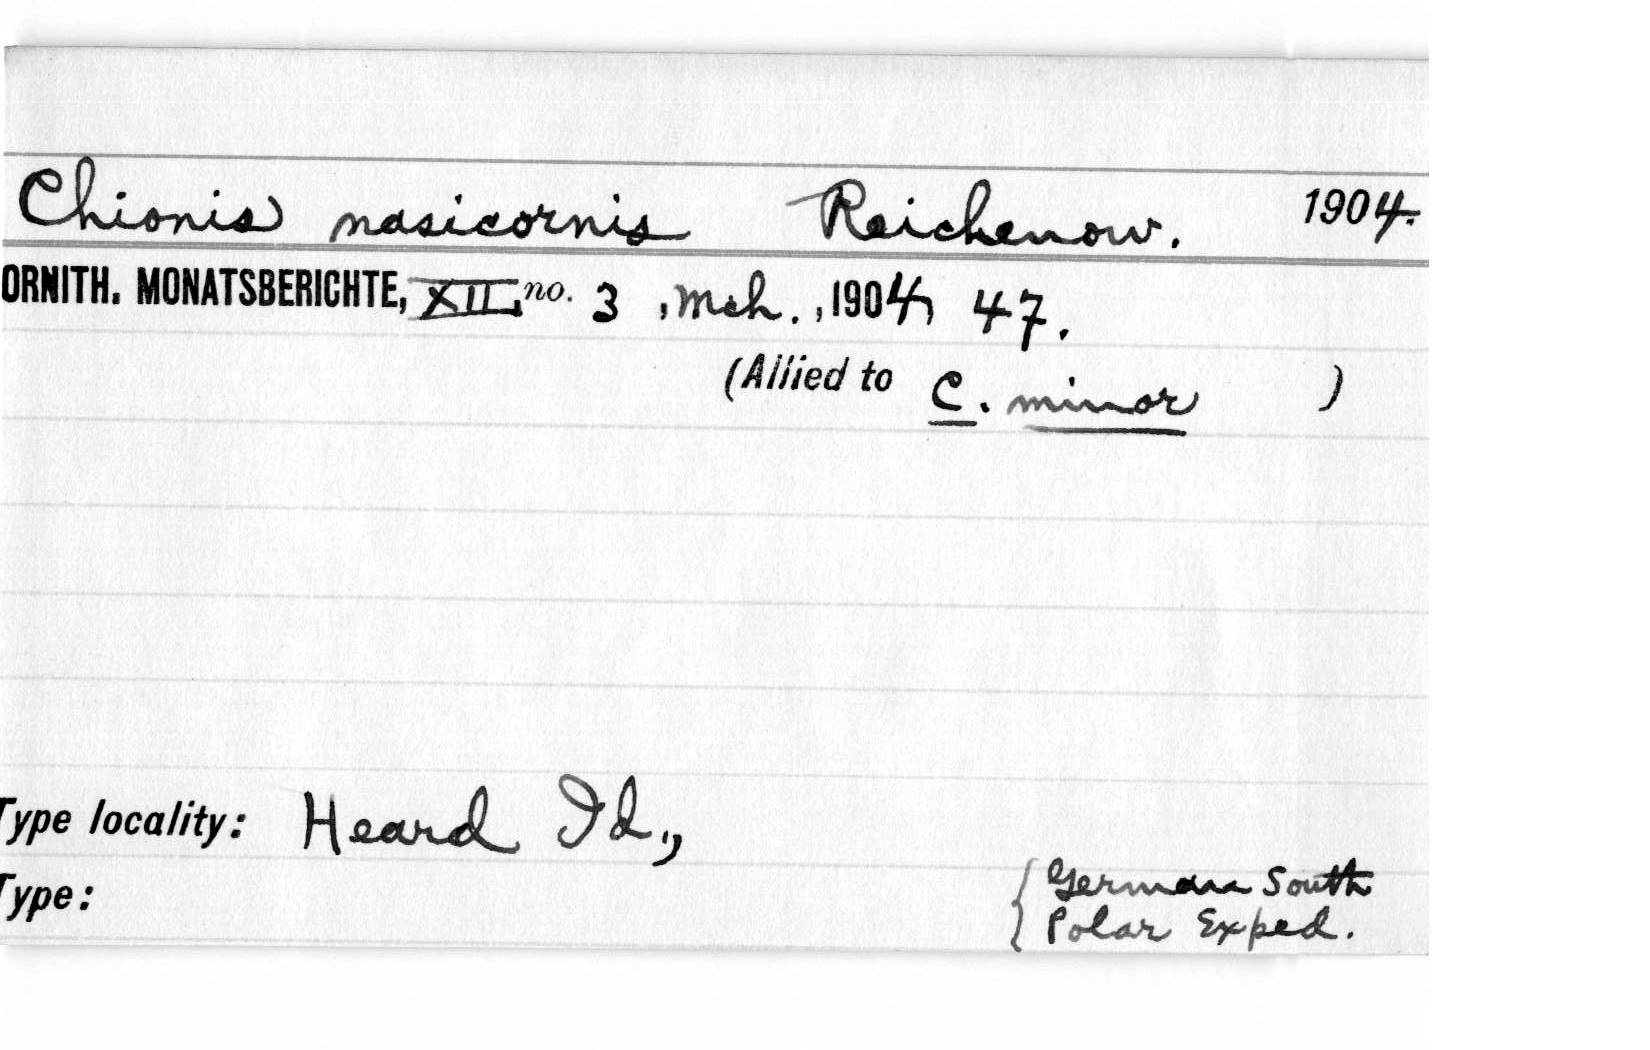 Chionis nasicornis Reichenow. 1904.
ORNITH. MONATSBERICHTE, XII, no. 3 , Mch. , 1904, 47.
(Allied to C. minor )
Type locality: Heard Id.,
Type: { German South
Polar Exped.